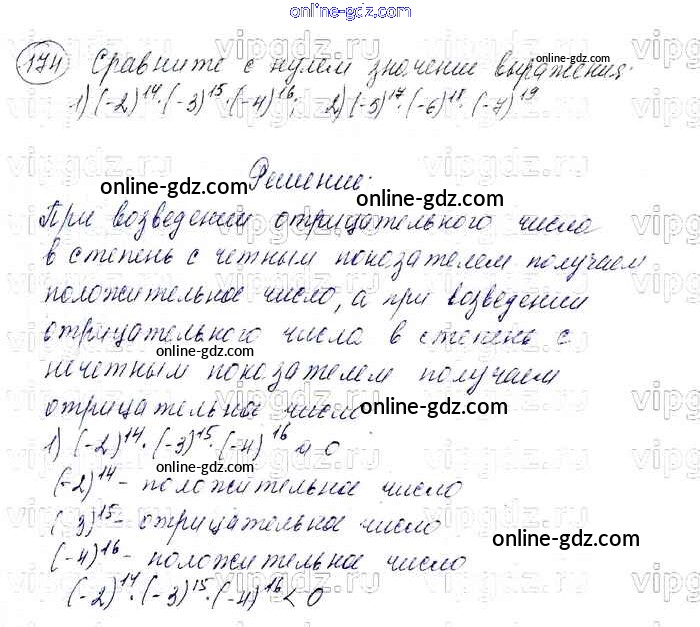 online-gdz.com
174 Сравните с нулем значение выражения:
online-gdz.com
1) (-2)^14 · (-3)^15 · (-4)^16; 2) (-5)^17 · (-6)^18 · (-7)^19
vipgdz.ru vipgdz.ru
Решение:
online-gdz.com online-gdz.com
При возведении отрицательного числа
в степень с четным показателем получаем
online-gdz.com
положительное число, а при возведении
отрицательного числа в степень с
online-gdz.com
нечетным показателем получаем
отрицательное число
online-gdz.com
1) (-2)^14 · (-3)^15 · (-4)^16 и 0
online-gdz.com
(-2)^14 - положительное число
(-3)^15 - отрицательное число
online-gdz.com
(-4)^16 - положительное число
(-2)^14 · (-3)^15 · (-4)^16 < 0
online-gdz.com